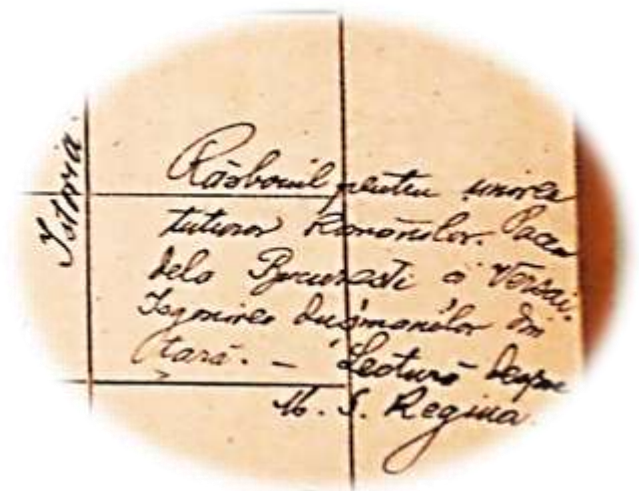 Istoria
Răsboiul pentru unirea
tuturor Românilor. Pacea
dela București și Versai.
Isgonirea dușmanilor din
țară. — Lectură despre
M. S. Regina.